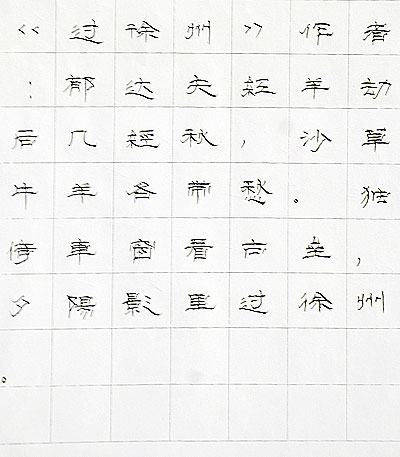 《过徐州》作者
:郁达夫紅羊劫
后几經秋,沙草
牛羊各帶愁。独
倚車窗看古垒,
夕陽影里过徐州
。